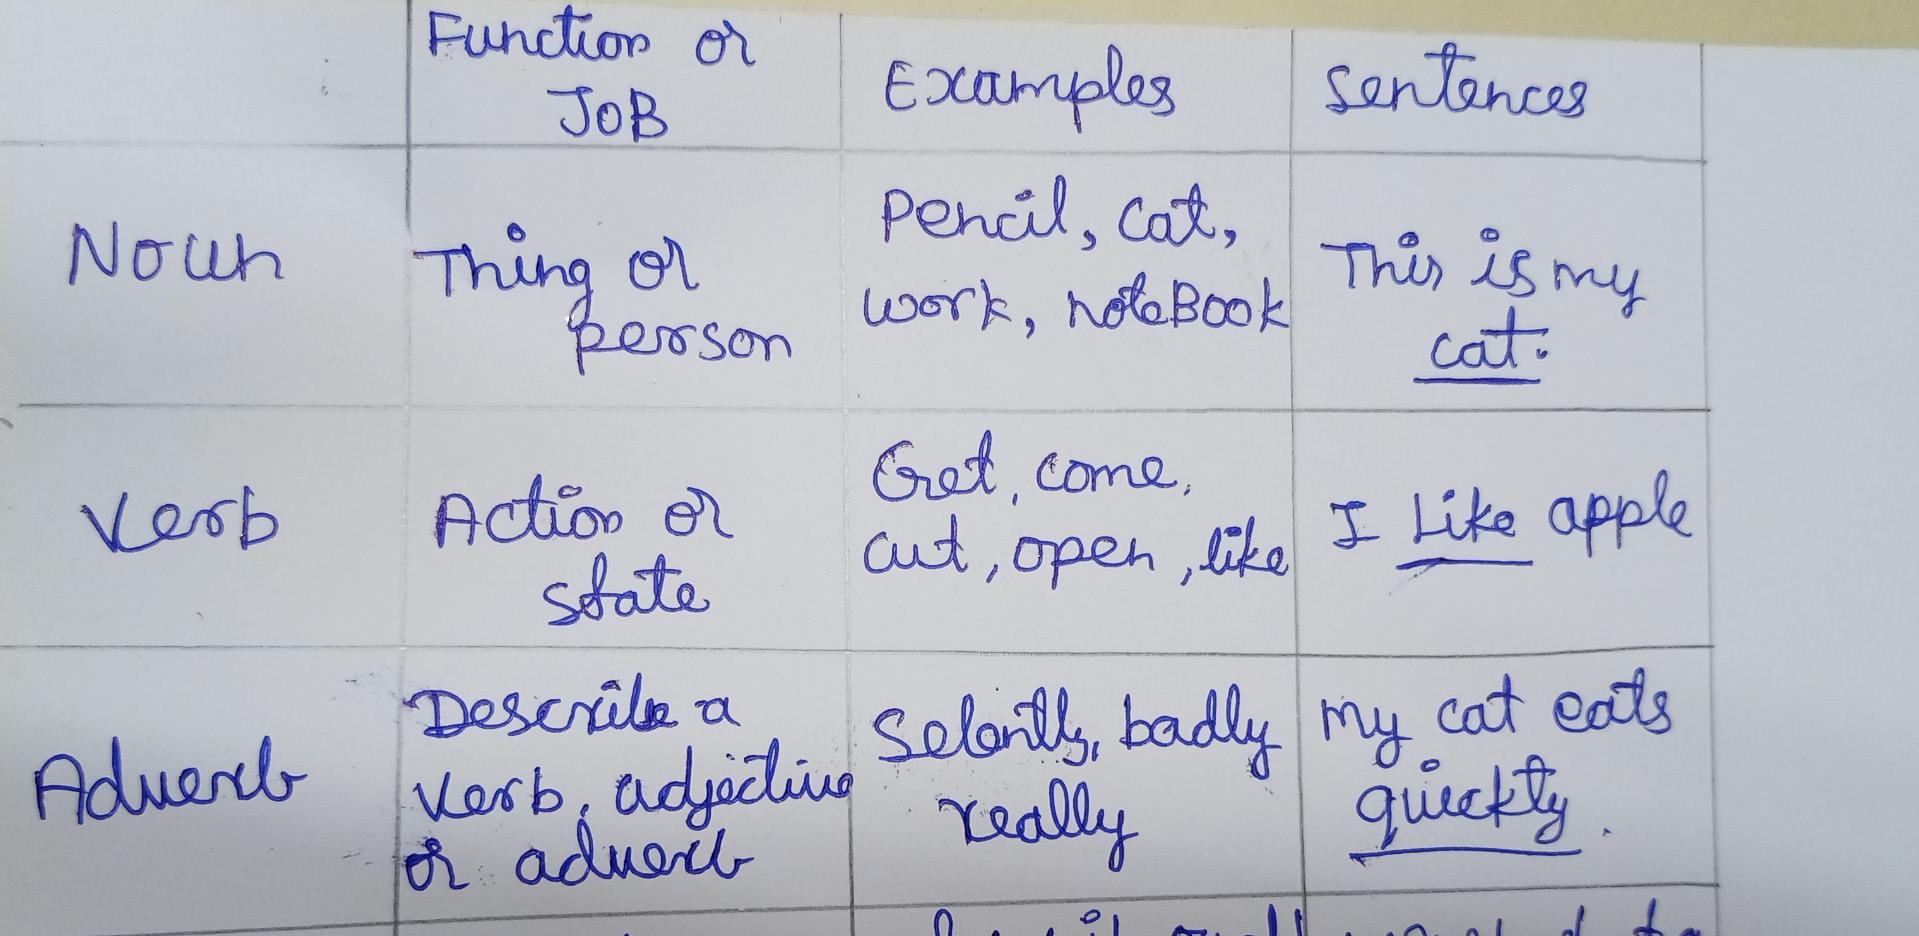 Function or
JOB
Examples
Sentences
Noun
Thing or
person
Pencil, cat,
work, noteBook
This is my
cat.
Verb
Action or
state
Get, come,
cut, open, like
I Like apple
Adverb
Describe a
verb, adjective
or adverb
Selently, badly
really
my cat eats
quickly.